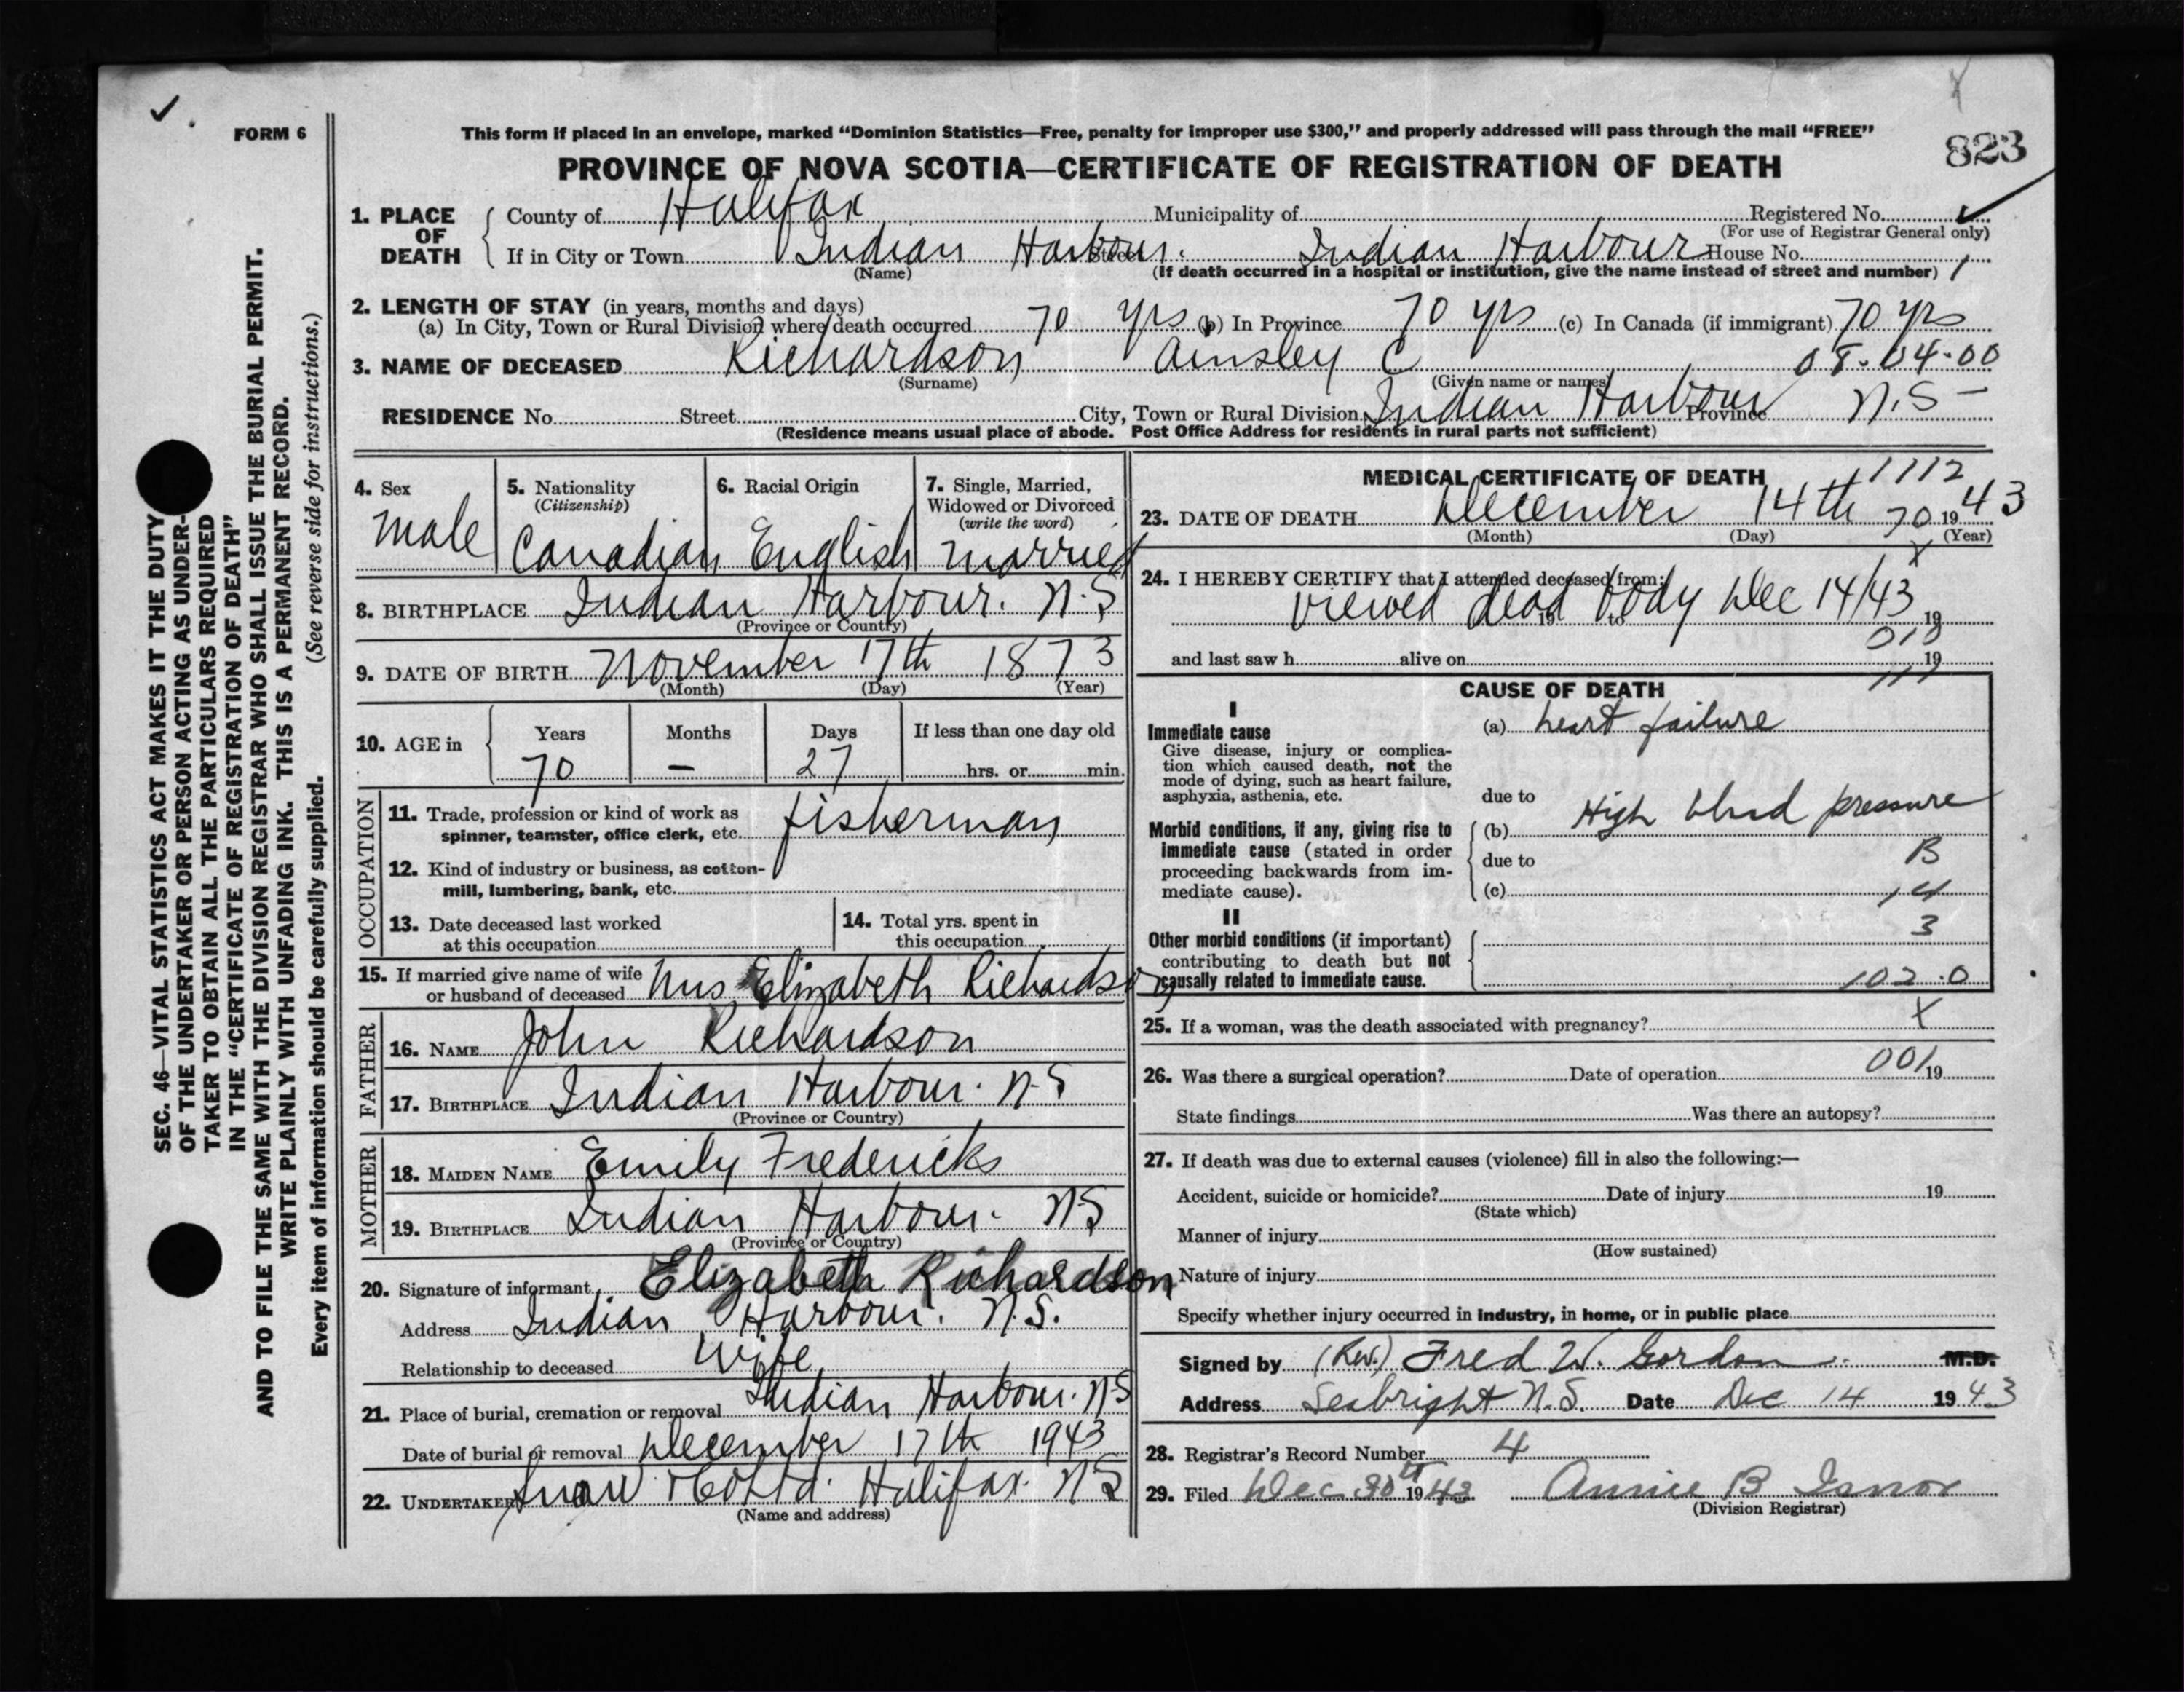 FORM 6
This form if placed in an envelope, marked “Dominion Statistics—Free, penalty for improper use $300,” and properly addressed will pass through the mail “FREE”
823
PROVINCE OF NOVA SCOTIA—CERTIFICATE OF REGISTRATION OF DEATH
1. PLACE OF DEATH
County of Halifax Municipality of Registered No.
(For use of Registrar General only)
If in City or Town Indian Harbour. Street Indian Harbour House No. 1
(Name) (If death occurred in a hospital or institution, give the name instead of street and number)
2. LENGTH OF STAY (in years, months and days)
(a) In City, Town or Rural Division where death occurred 70 yrs (b) In Province 70 yrs (c) In Canada (if immigrant) 70 yrs
3. NAME OF DECEASED Richardson Ainsley C 08-04-00
(Surname) (Given name or names)
RESIDENCE No. Street City, Town or Rural Division Indian Harbour Province N.S -
(Residence means usual place of abode. Post Office Address for residents in rural parts not sufficient)
4. Sex
male
5. Nationality
(Citizenship)
Canadian
6. Racial Origin
English
7. Single, Married,
Widowed or Divorced
(write the word)
married
8. BIRTHPLACE Indian Harbour. N.S
(Province or Country)
9. DATE OF BIRTH November 17th 1873
(Month) (Day) (Year)
10. AGE in
Years Months Days If less than one day old
70 — 27 hrs. or min.
OCCUPATION
11. Trade, profession or kind of work as
spinner, teamster, office clerk, etc. fisherman
12. Kind of industry or business, as cotton-
mill, lumbering, bank, etc.
13. Date deceased last worked
at this occupation
14. Total yrs. spent in
this occupation
15. If married give name of wife
or husband of deceased Mrs Elizabeth Richardson
FATHER
16. NAME John Richardson
17. BIRTHPLACE Indian Harbour. N-S
(Province or Country)
MOTHER
18. MAIDEN NAME Emily Fredericks
19. BIRTHPLACE Indian Harbour. NS
(Province or Country)
20. Signature of informant Elizabeth Richardson
Address Indian Harbour. N.S.
Relationship to deceased wife
21. Place of burial, cremation or removal Indian Harbour. NS
Date of burial or removal December 17th 1943
22. UNDERTAKER Snow & Co Ltd. Halifax. NS
(Name and address)
MEDICAL CERTIFICATE OF DEATH
1112
23. DATE OF DEATH December 14th 70 1943
(Month) (Day) (Year)
X
24. I HEREBY CERTIFY that I attended deceased from:
viewed dead body Dec 14/43
19 to 19
010
and last saw h alive on 19
111
CAUSE OF DEATH
I
Immediate cause
Give disease, injury or complica-
tion which caused death, not the
mode of dying, such as heart failure,
asphyxia, asthenia, etc.
(a) heart failure
due to
Morbid conditions, if any, giving rise to
immediate cause (stated in order
proceeding backwards from im-
mediate cause).
(b) High blood pressure
due to B
(c) 14
II
3
Other morbid conditions (if important)
contributing to death but not
causally related to immediate cause.
102.0
25. If a woman, was the death associated with pregnancy? X
26. Was there a surgical operation? Date of operation 001 19
State findings Was there an autopsy?
27. If death was due to external causes (violence) fill in also the following:—
Accident, suicide or homicide? Date of injury 19
(State which)
Manner of injury
(How sustained)
Nature of injury
Specify whether injury occurred in industry, in home, or in public place
Signed by (Rev.) Fred W. Gordon M.D.
Address Seabright N.S. Date Dec 14 1943
28. Registrar's Record Number 4
29. Filed Dec 30 1943 Annie B Isnor
(Division Registrar)
SEC. 46—VITAL STATISTICS ACT MAKES IT THE DUTY
OF THE UNDERTAKER OR PERSON ACTING AS UNDER-
TAKER TO OBTAIN ALL THE PARTICULARS REQUIRED
IN THE “CERTIFICATE OF REGISTRATION OF DEATH”
AND TO FILE THE SAME WITH THE DIVISION REGISTRAR WHO SHALL ISSUE THE BURIAL PERMIT.
WRITE PLAINLY WITH UNFADING INK. THIS IS A PERMANENT RECORD.
Every item of information should be carefully supplied. (See reverse side for instructions.)